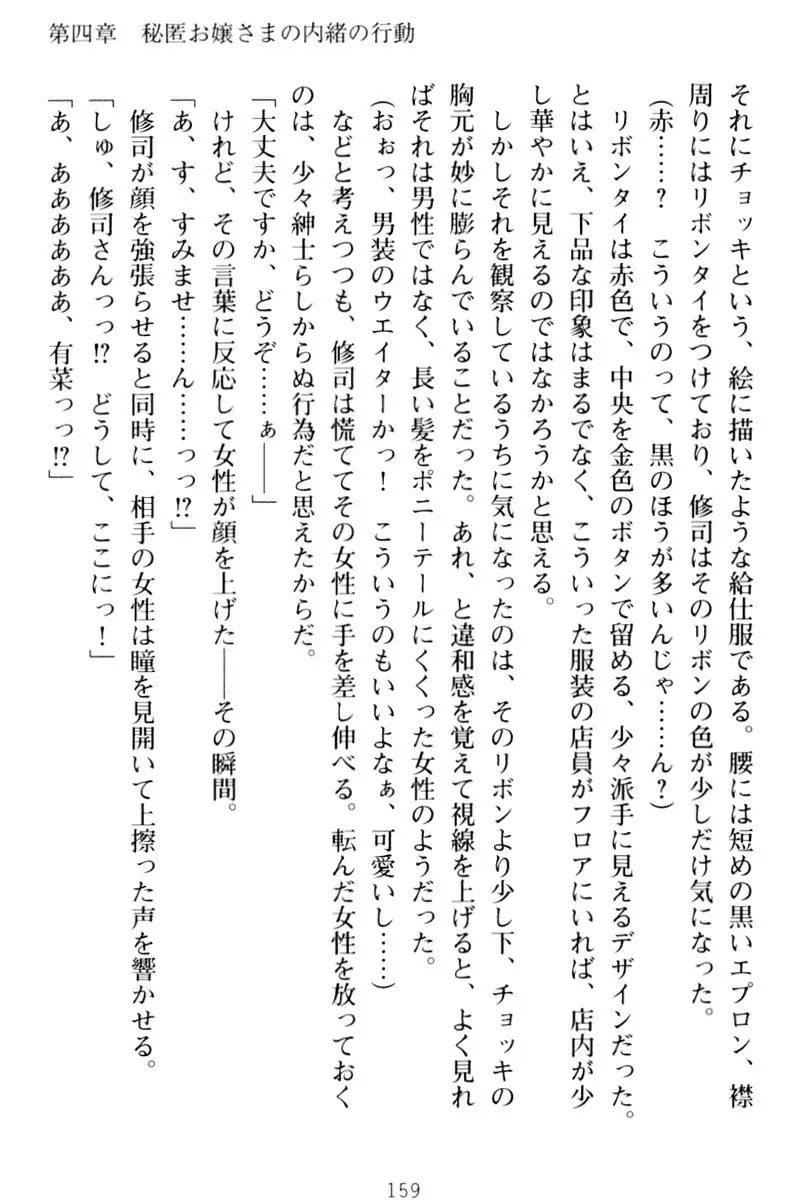 第四章　秘匿お嬢さまの内緒の行動
それにチョッキという、絵に描いたような給仕服である。腰には短めの黒いエプロン、襟
周りにはリボンタイをつけており、修司はそのリボンの色が少しだけ気になった。
（赤……？　こういうのって、黒のほうが多いんじゃ……ん？）
リボンタイは赤色で、中央を金色のボタンで留める、少々派手に見えるデザインだった。
とはいえ、下品な印象はまるでなく、こういった服装の店員がフロアにいれば、店内が少
し華やかに見えるのではなかろうかと思える。
しかしそれを観察しているうちに気になったのは、そのリボンより少し下、チョッキの
胸元が妙に膨らんでいることだった。あれ、と違和感を覚えて視線を上げると、よく見れ
ばそれは男性ではなく、長い髪をポニーテールにくくった女性のようだった。
（おぉっ、男装のウエイターかっ！　こういうのもいいよなぁ、可愛いし……）
などと考えつつも、修司は慌ててその女性に手を差し伸べる。転んだ女性を放っておく
のは、少々紳士らしからぬ行為だと思えたからだ。
「大丈夫ですか、どうぞ……ぁ――」
けれど、その言葉に反応して女性が顔を上げた――その瞬間。
「あ、す、すみませ……ん……っっ!?」
修司が顔を強張らせると同時に、相手の女性は瞳を見開いて上擦った声を響かせる。
「しゅ、修司さんっっ!?　どうして、ここにっ！」
「あ、ああああああ、有菜っっ!?」
159